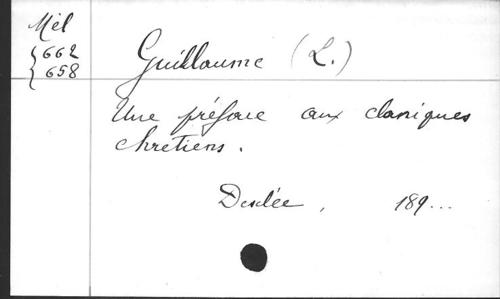 Mél
662
658
Guillaume (L.)
Une préface aux classiques
chretiens.
Desclée, 189...